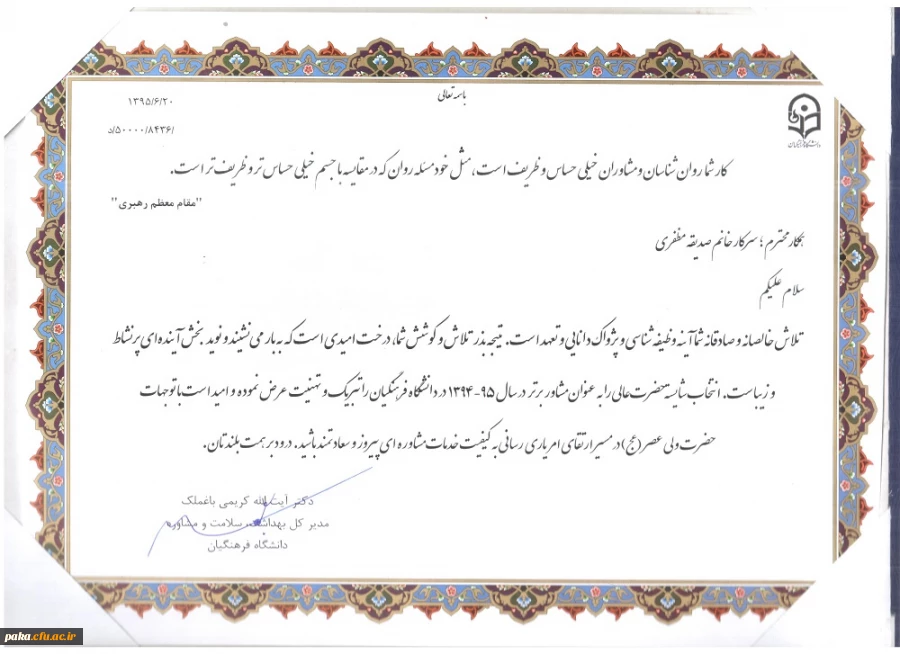 باسمه تعالی
۱۳۹۵/۶/۲۰
د/۵۰۰۰۰/۸۴۳۶/
دانشگاه فرهنگیان
کار شما روان شناسان و مشاوران خیلی حساس و ظریف است، مثل خود مسئله روان که در مقایسه با جسم خیلی حساس تر و ظریف تر است.
"مقام معظم رهبری"
همکار محترم ؛ سرکار خانم صدیقه مظفری
سلام علیکم
تلاش خالصانه و صادقانه شما آینه وظیفه شناسی و پژواک دانایی و تعهد است. نتیجه بذر تلاش و کوشش شما، درخت امیدی است که به بار می نشیند و نوید بخش آینده ای پر نشاط
و زیباست. انتخاب شایسته حضرت عالی را به عنوان مشاور برتر در سال ۹۵-۱۳۹۴ در دانشگاه فرهنگیان را تبریک و تهنیت عرض نموده و امید است با توجهات
حضرت ولی عصر (عج) در مسیر ارتقای امر یاری رسانی به کیفیت خدمات مشاوره ای پیروز و سعادتمند باشید. درود بر همت بلندتان.
دکتر آیت الله کریمی باغملک
مدیر کل بهداشت، سلامت و مشاوره
دانشگاه فرهنگیان
paka.cfu.ac.ir